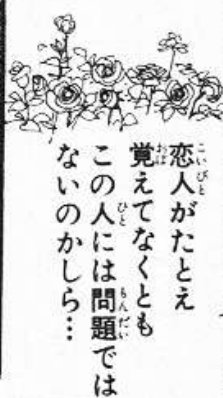 恋人がたとえ
覚えてなくとも
この人には問題では
ないのかしら…